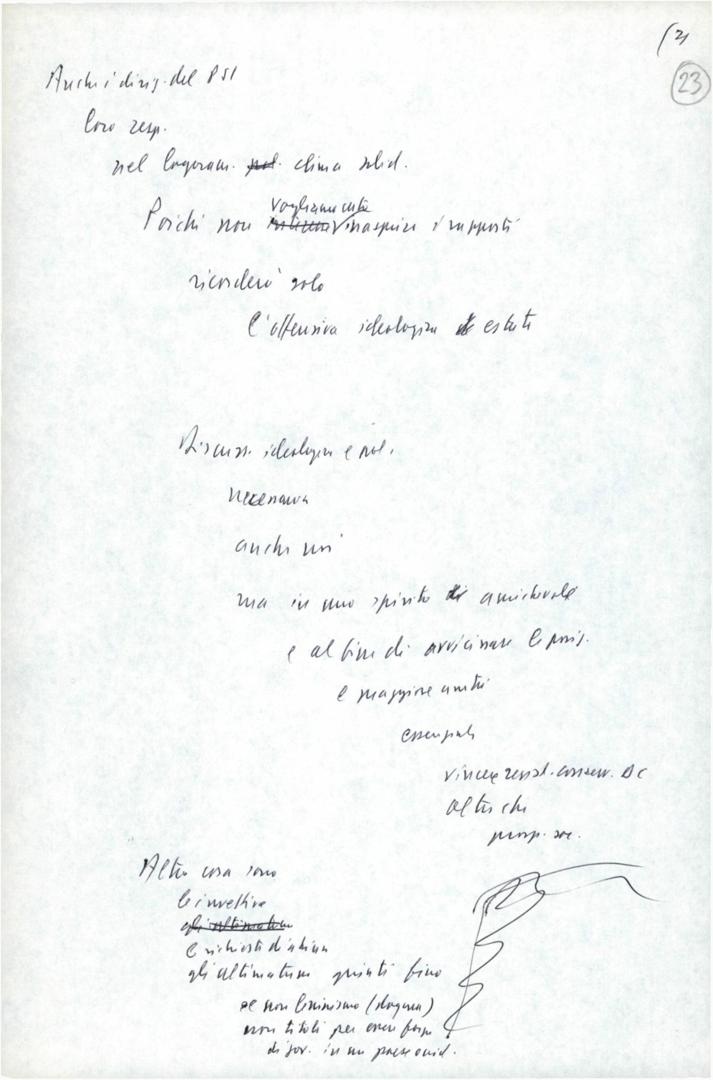 (21
23
Anche i dirig. del PSI
loro resp.
nel logoram. clima solid.
Poiché non vogliamo
inasprire i rapporti
ricorderò solo
l'offensiva ideologica estate
Discuss. ideologica e pol.
necessaria
anche noi
ma in uno spirito di amichevole
e al fine di avvicinare le posiz.
e maggiore unità
essenziale
vincere resist. conserv. DC
oltre che
prosp. soc.
Altra cosa sono
le invettive
gli ultimatum
e richieste d'abiura
gli ultimatum giunti fino
se non leninismo (dogma)
non titoli per essere forza
di gov. in un paese occid.